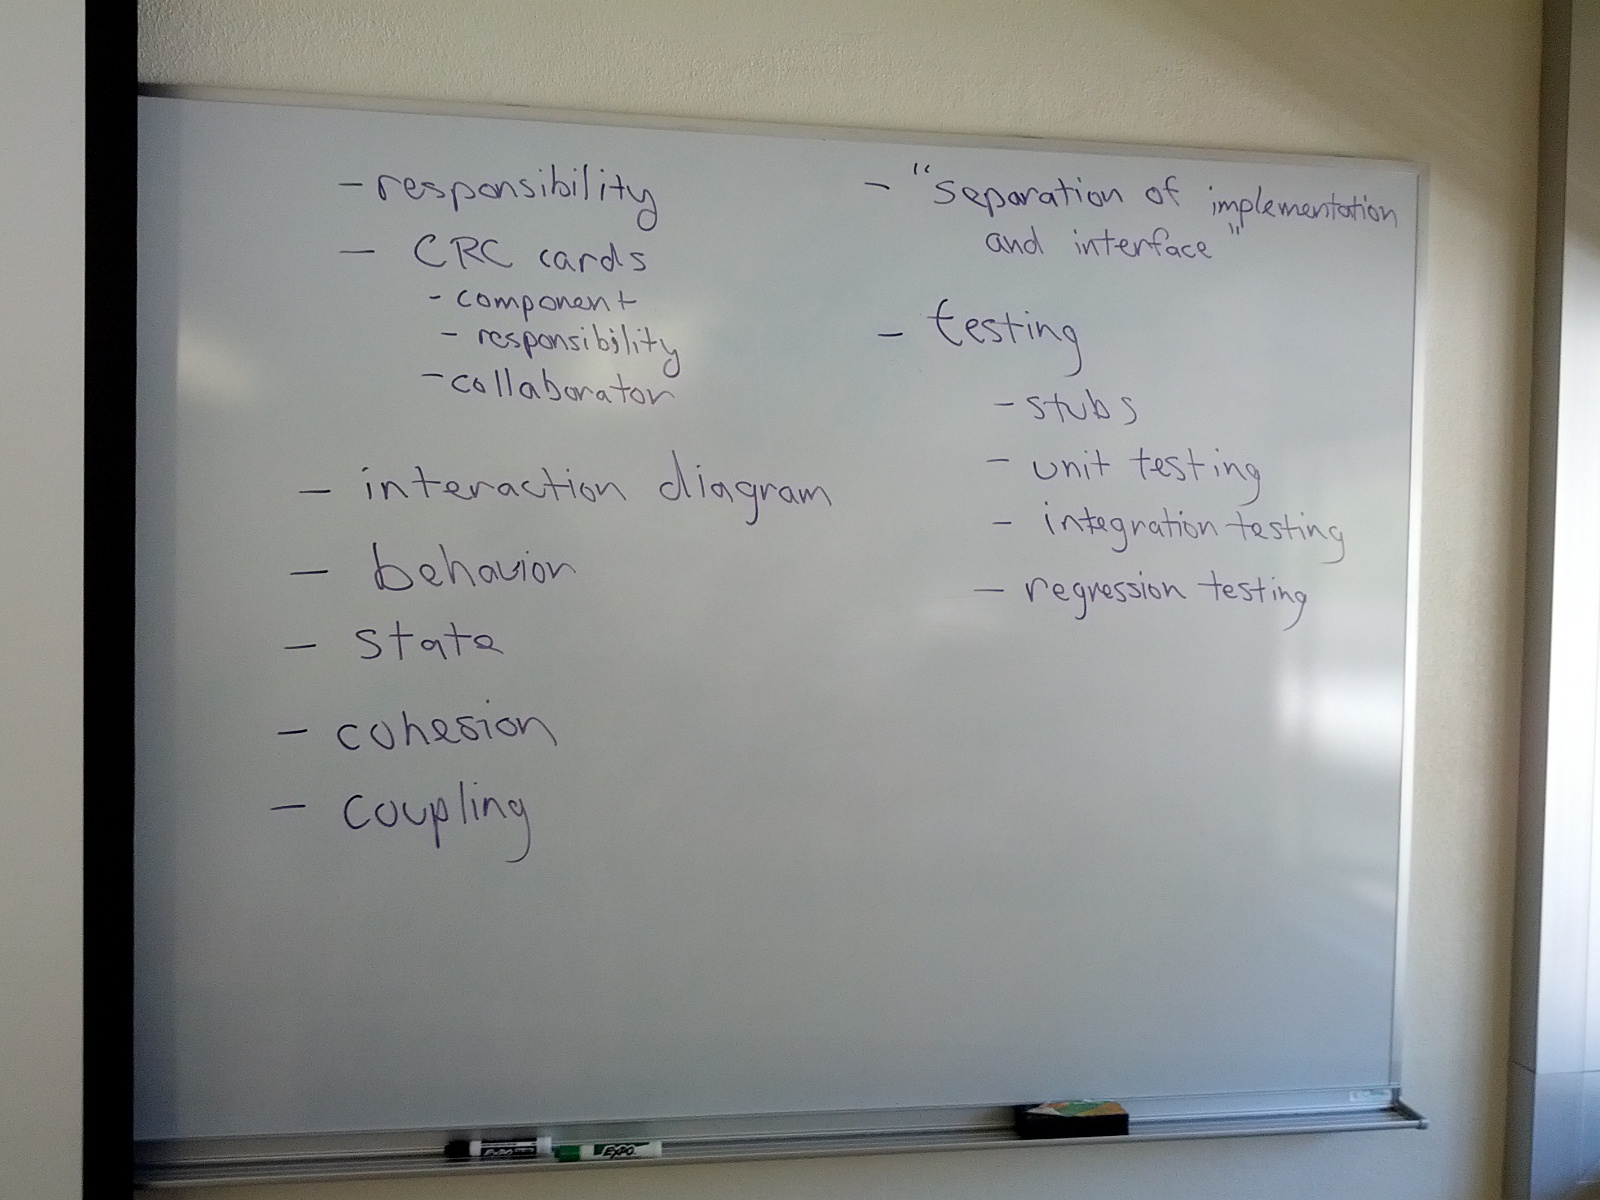 - responsibility
- CRC cards
- component
- responsibility
- collaborator
- interaction diagram
- behavior
- state
- cohesion
- coupling
- "separation of implementation
and interface"
- testing
- stubs
- unit testing
- integration testing
- regression testing
EXPO
EXPO